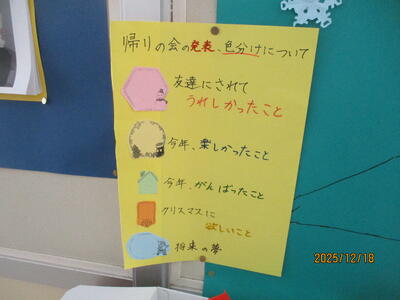 帰りの会の発表、色分けについて
友達にされて
うれしかったこと
今年、楽しかったこと
今年、がんばったこと
クリスマスに
欲しいこと
将来の夢
2025/12/18